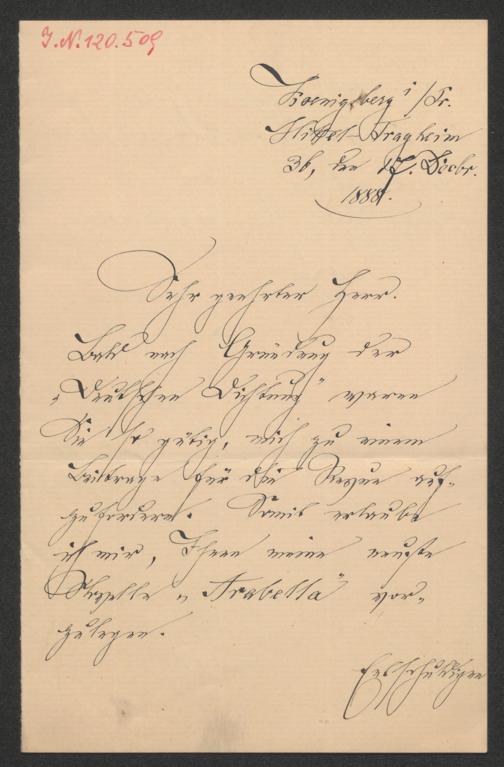 I.N. 120.509
Koenigsberg i/Pr.
Mittel-Tragheim
36, den 17. Decbr.
1888.
Sehr geehrter Herr.
Bald nach Gründung der
„Deutschen Dichtung" waren
Sie so gütig, mich zu einem
Beitrage für die Revue auf-
zufordern. Somit erlaube
ich mir, Ihnen meine neueste
Novelle „Arabella" vor-
zulegen.
Entschuldigen